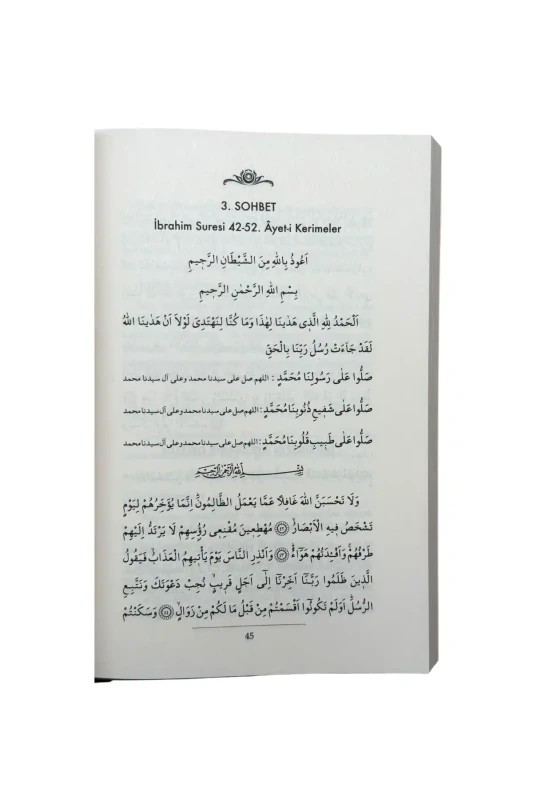 3. SOHBET
İbrahim Suresi 42-52. Âyet-i Kerimeler
اَعُوذُ بِاللهِ مِنَ الشَّيْطَانِ الرَّجِيمِ
بِسْمِ اللهِ الرَّحْمٰنِ الرَّحِيمِ
اَلْحَمْدُ لِلّٰهِ الَّذِي هَدٰينَا لِهٰذَا وَمَا كُنَّا لِنَهْتَدِيَ لَوْلَا اَنْ هَدٰينَا اللهُ
لَقَدْ جَاءَتْ رُسُلُ رَبِّنَا بِالْحَقِّ
صَلُّوا عَلٰى رَسُولِنَا مُحَمَّدٍ : اللهم صل على سيدنا محمد وعلى آل سيدنا محمد
صَلُّوا عَلٰى شَفِيعِ ذُنُوبِنَا مُحَمَّدٍ: اللهم صل على سيدنا محمد وعلى آل سيدنا محمد
صَلُّوا عَلٰى طَبِيبِ قُلُوبِنَا مُحَمَّدٍ: اللهم صل على سيدنا محمد وعلى آل سيدنا محمد
بِسْمِ اللهِ الرَّحْمٰنِ الرَّحِيمِ
وَلَا تَحْسَبَنَّ اللهَ غَافِلًا عَمَّا يَعْمَلُ الظَّالِمُونَ اِنَّمَا يُؤَخِّرُهُمْ لِيَوْمٍ
تَشْخَصُ فِيهِ الْاَبْصَارُ ﴿٤٢﴾ مُهْطِعِينَ مُقْنِعِي رُؤُسِهِمْ لَا يَرْتَدُّ اِلَيْهِمْ
طَرْفُهُمْ وَاَفْئِدَتُهُمْ هَوَاءٌ ﴿٤٣﴾ وَاَنْذِرِ النَّاسَ يَوْمَ يَأْتِيهِمُ الْعَذَابُ فَيَقُولُ
الَّذِينَ ظَلَمُوا رَبَّنَا اَخِّرْنَا اِلٰى اَجَلٍ قَرِيبٍ نُجِبْ دَعْوَتَكَ وَنَتَّبِعِ
الرُّسُلَ اَوَلَمْ تَكُونُوا اَقْسَمْتُمْ مِنْ قَبْلُ مَا لَكُمْ مِنْ زَوَالٍ ﴿٤٤﴾ وَسَكَنْتُمْ
45